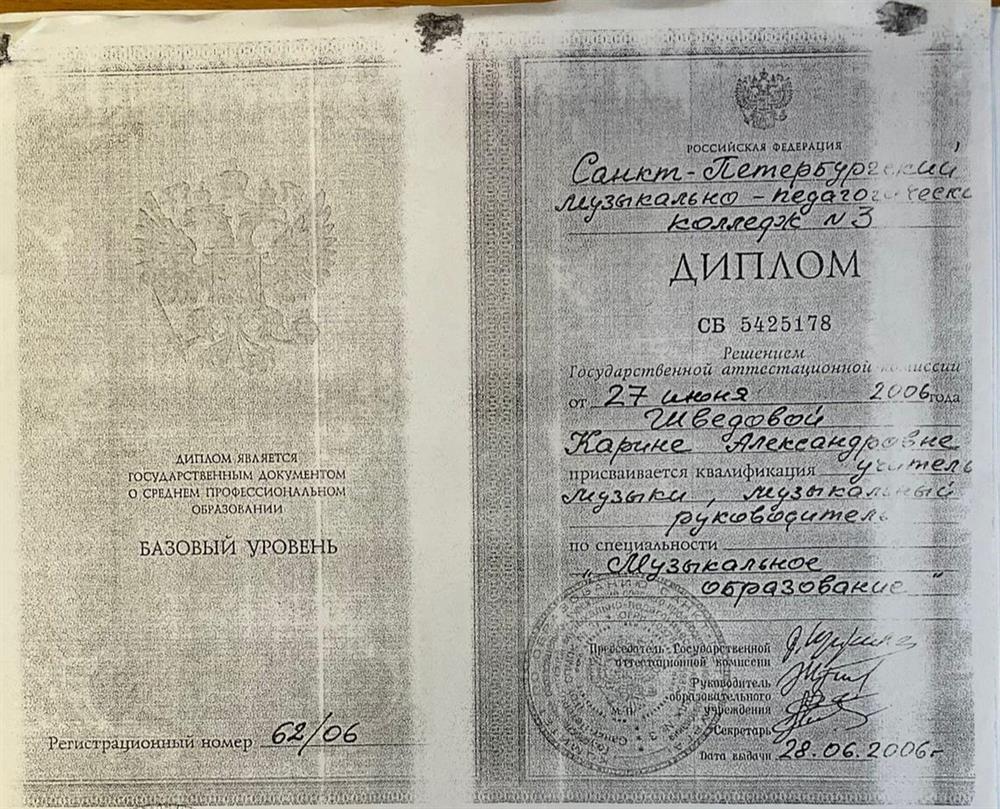 ДИПЛОМ ЯВЛЯЕТСЯ
ГОСУДАРСТВЕННЫМ ДОКУМЕНТОМ
О СРЕДНЕМ ПРОФЕССИОНАЛЬНОМ
ОБРАЗОВАНИИ
БАЗОВЫЙ УРОВЕНЬ
Регистрационный номер 62/06
РОССИЙСКАЯ ФЕДЕРАЦИЯ
Санкт-Петербургский
музыкально-педагогический
колледж N3
ДИПЛОМ
СБ 5425178
Решением
Государственной аттестационной комиссии
от 27 июня 2006 года
Шведовой
Карине Александровне
присваивается квалификация учитель
музыки, музыкальный
руководитель
по специальности
"Музыкальное
образование"
Председатель Государственной
аттестационной комиссии
Руководитель
образовательного
учреждения
Секретарь
Дата выдачи 28.06.2006г